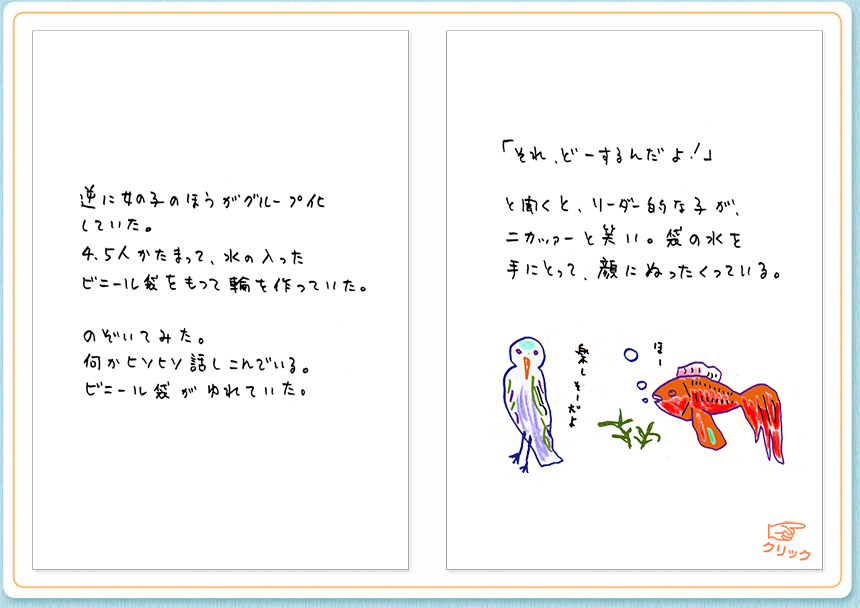 逆に女の子のほうがグループ化
していた。
4.5人かたまって、水の入った
ビニール袋をもって輪を作っていた。
のぞいてみた。
何かヒソヒソ話しこんでいる。
ビニール袋がゆれていた。
「それ、どーするんだよ!」
と聞くと、リーダー的な子が、
ニカッァーと笑い。袋の水を
手にとって、顔にぬったくっている。
楽しそーだよ
ほー
クリック